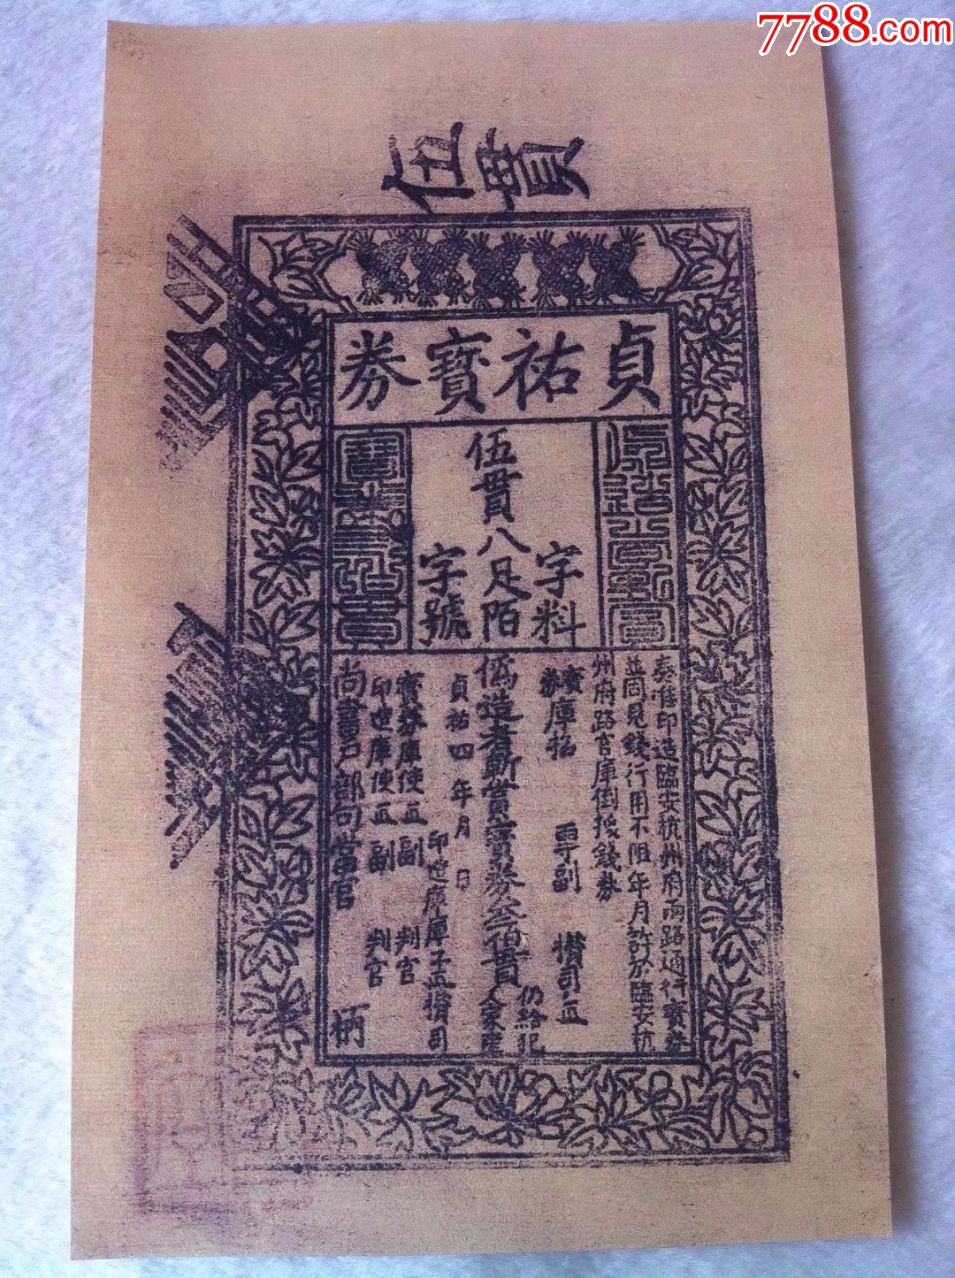 7788.com
伍貫
貞祐寶券
伍貫八足陌
字料
字號
奏准印造臨安杭州府兩路通行寶券
並同見錢行用不限年月許於臨安杭
州府路官庫倒換錢券
寶券庫 副 攢司 正
偽造者斬賞寶券叁佰貫仍給犯人家產
貞祐四年 月 日
印造庫庫子正攢司
寶券庫使正 副 判官
印造庫使正 副 判官
尚書戶部司當官